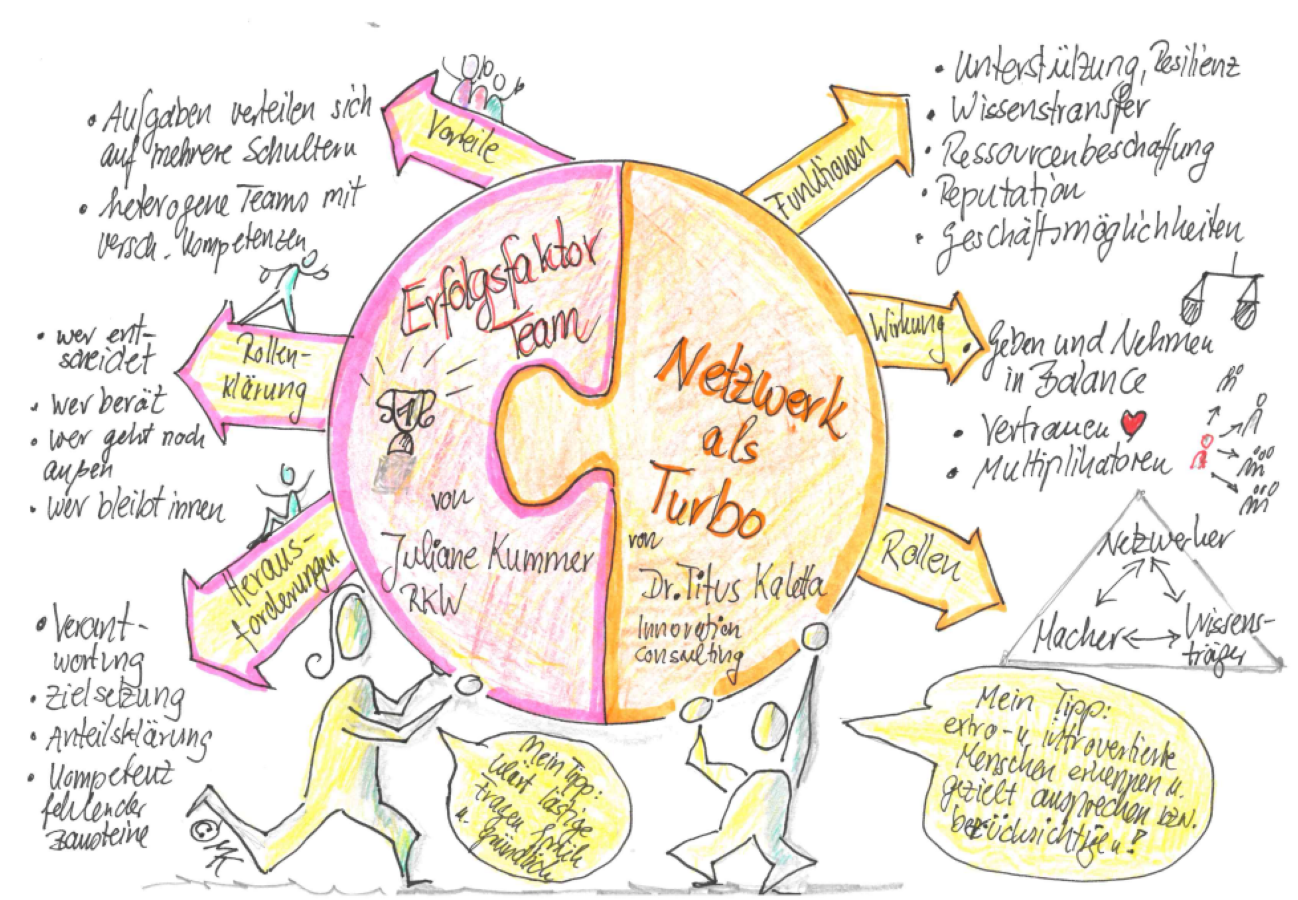 Erfolgsfaktor
Team
von
Juliane Kummer
RKW
Vorteile
• Aufgaben verteilen sich
auf mehrere Schultern
• heterogene Teams mit
versch. Kompetenzen
Rollen-
klärung
• wer ent-
scheidet
• wer berät
• wer geht nach
außen
• wer bleibt innen
Heraus-
forderungen
• Verant-
wortung
• Zielsetzung
• Anteilsklärung
• Kompetenz
fehlender
Bausteine
Mein Tipp:
lästige
Fragen früh
u. gründlich
Netzwerk
als
Turbo
von
Dr. Titus Kaletta
Innovation
Consulting
Funktionen
• Unterstützung, Resilienz
• Wissenstransfer
• Ressourcenbeschaffung
• Reputation
• Geschäftsmöglichkeiten
Wirkung
• Geben und Nehmen
in Balance
• Vertrauen
• Multiplikatoren
Rollen
Netzwerker
Macher
Wissens-
träger
Mein Tipp:
extro- u. introvertierte
Menschen erkennen u.
gezielt ansprechen bzw.
berücksichtigen!
© MK